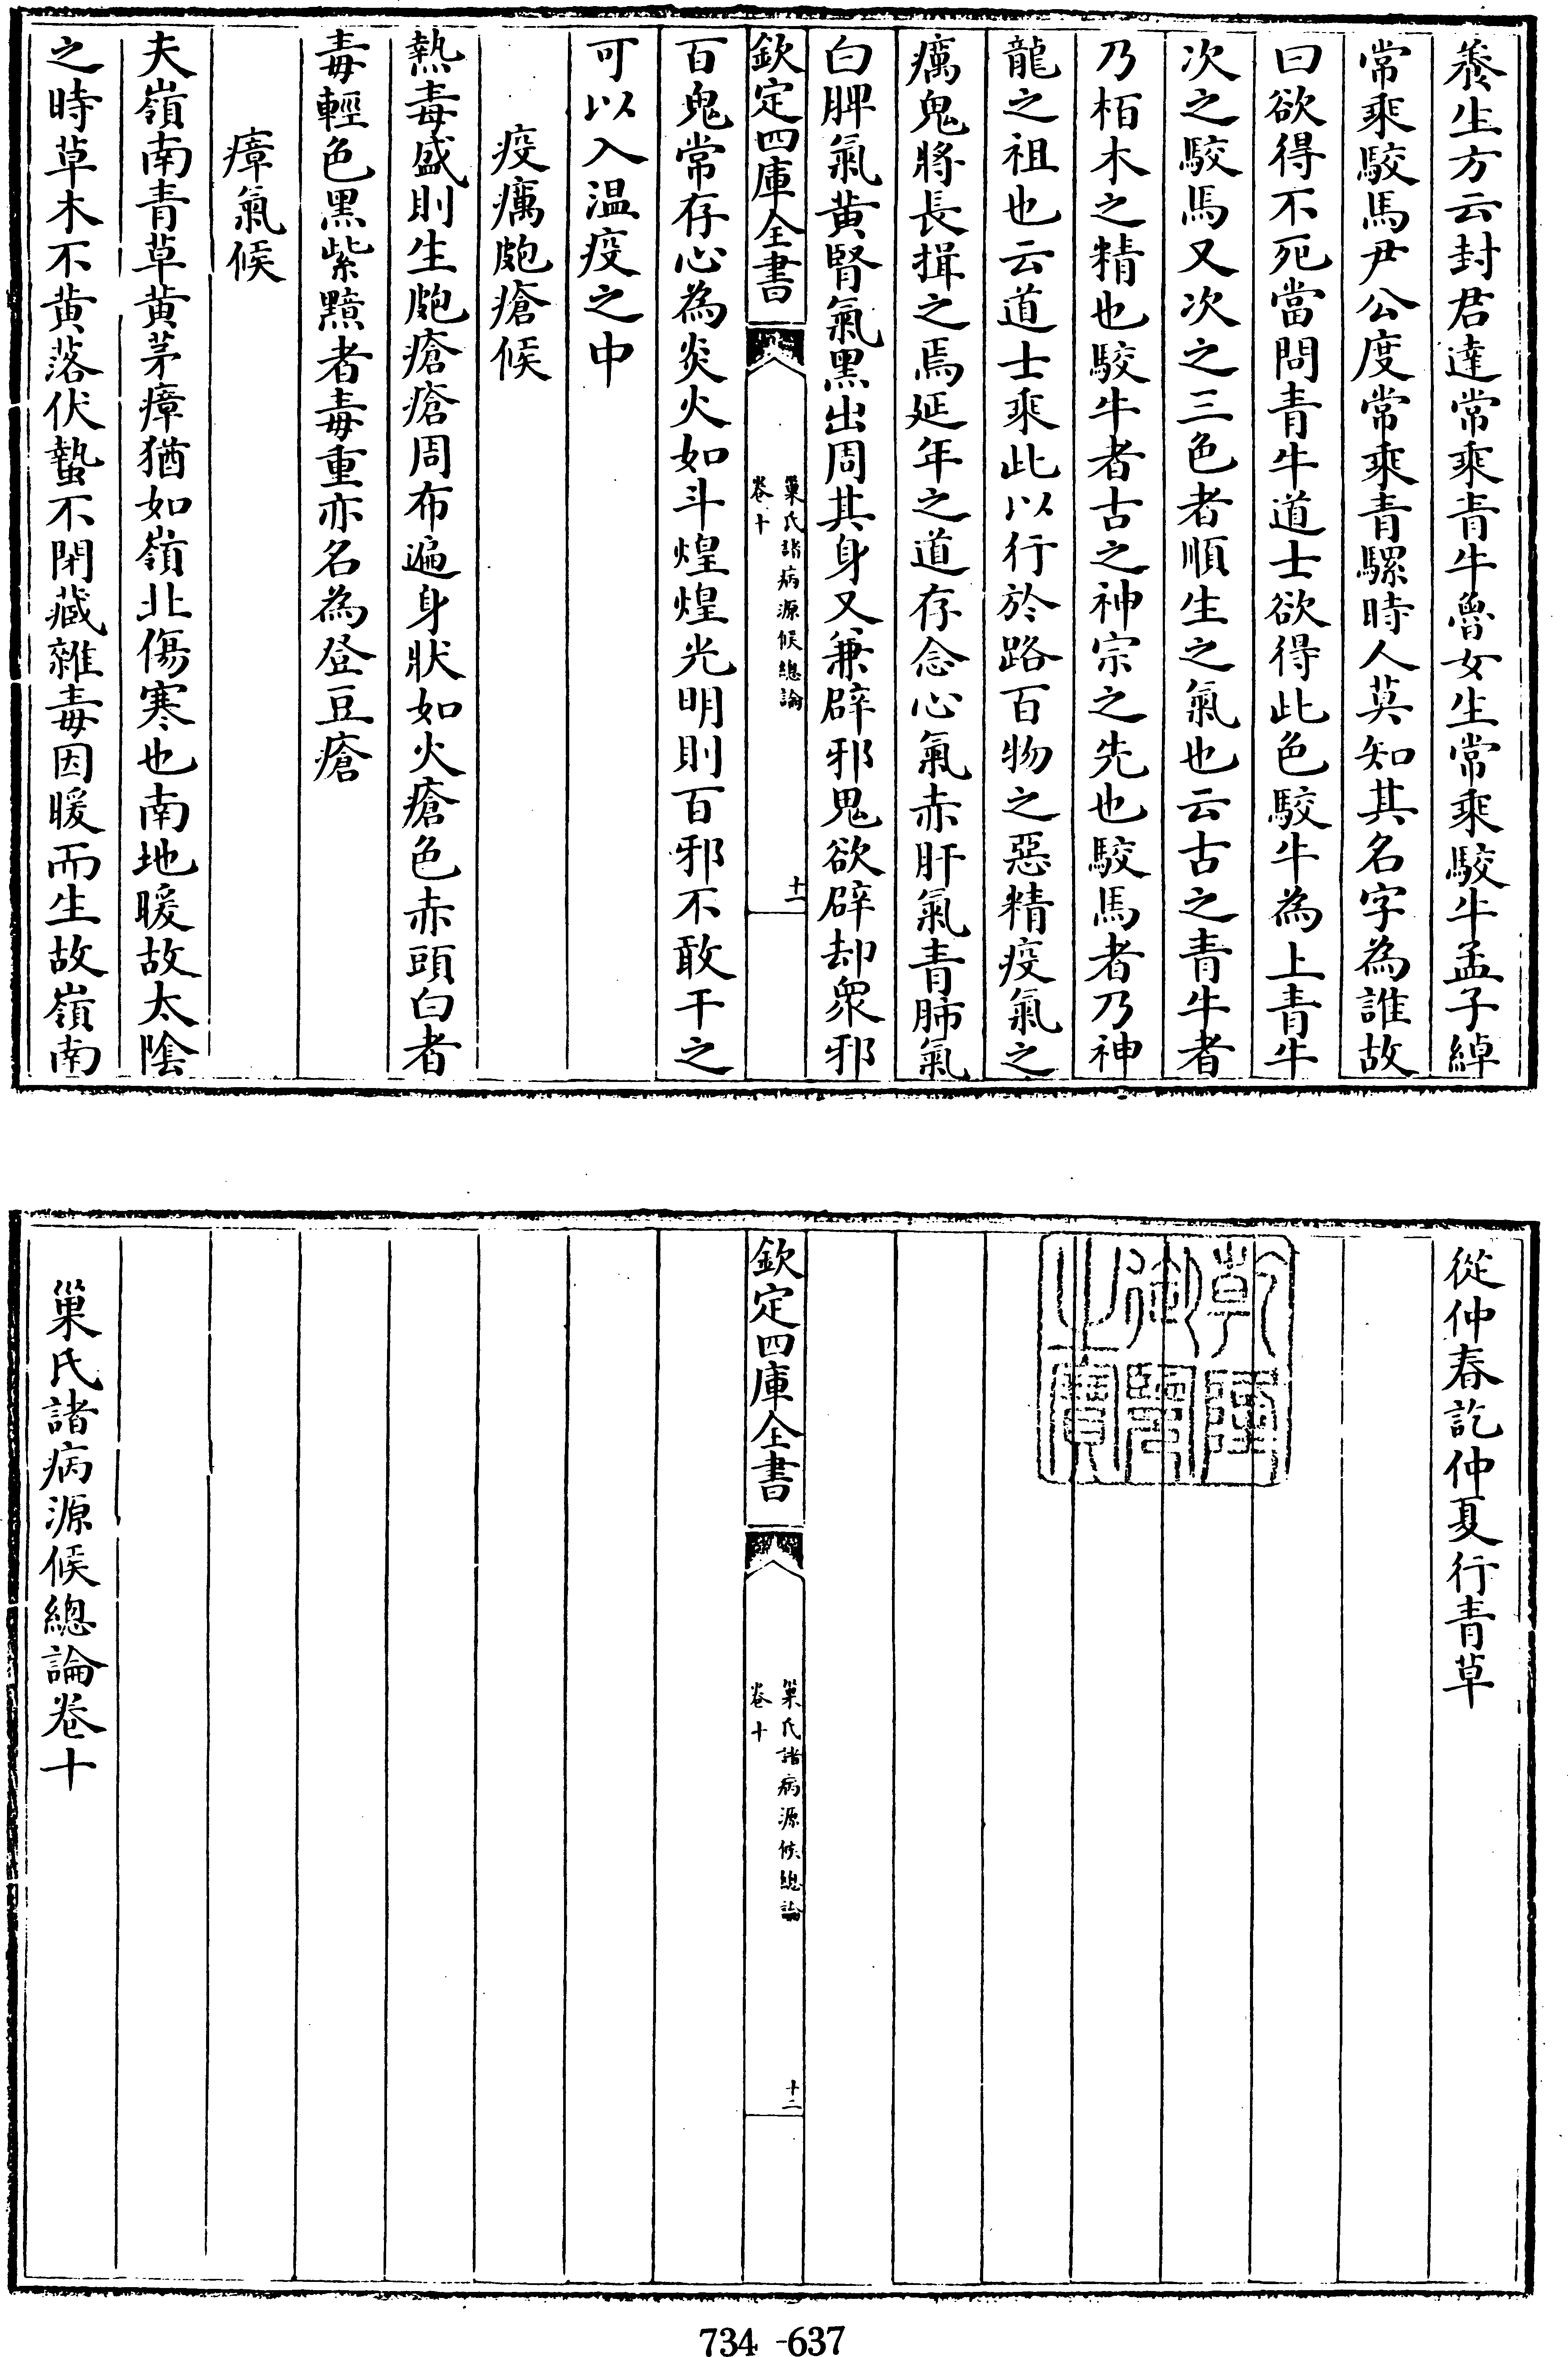 養生方云封君達常乘青牛魯女生常乘駮牛孟子綽
常乘駮馬尹公度常乘青騾時人莫知其名字為誰故
曰欲得不死當問青牛道士欲得此色駮牛為上青牛
次之駮馬又次之三色者順生之氣也云古之青牛者
乃栢木之精也駮牛者古之神宗之先也駮馬者乃神
龍之祖也云道士乘此以行於路百物之惡精疫氣之
癘鬼將長揖之焉延年之道存念心氣赤肝氣青肺氣
白脾氣黄腎氣黑出周其身又兼辟邪鬼欲辟却衆邪
欽定四庫全書
巢氏諸病源候總論
卷十
十一
百鬼常存心為炎火如斗煌煌光明則百邪不敢干之
可以入温疫之中
疫癘皰瘡候
熱毒盛則生皰瘡瘡周布遍身狀如火瘡色赤頭白者
毒輕色黑紫黯者毒重亦名為登豆瘡
瘴氣候
夫嶺南青草黄茅瘴猶如嶺北傷寒也南地暖故太陰
之時草木不黄落伏蟄不閉藏雜毒因暖而生故嶺南
從仲春訖仲夏行青草
乾隆
御覽
之寶
欽定四庫全書
巢氏諸病源候總論
卷十
十二
巢氏諸病源候總論卷十
734-637